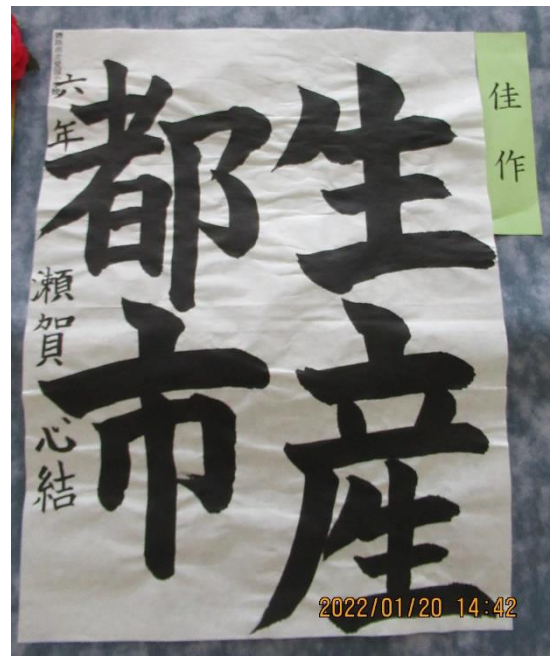 佳作
生産
都市
六年 瀬賀 心結
2022/01/20 14:42